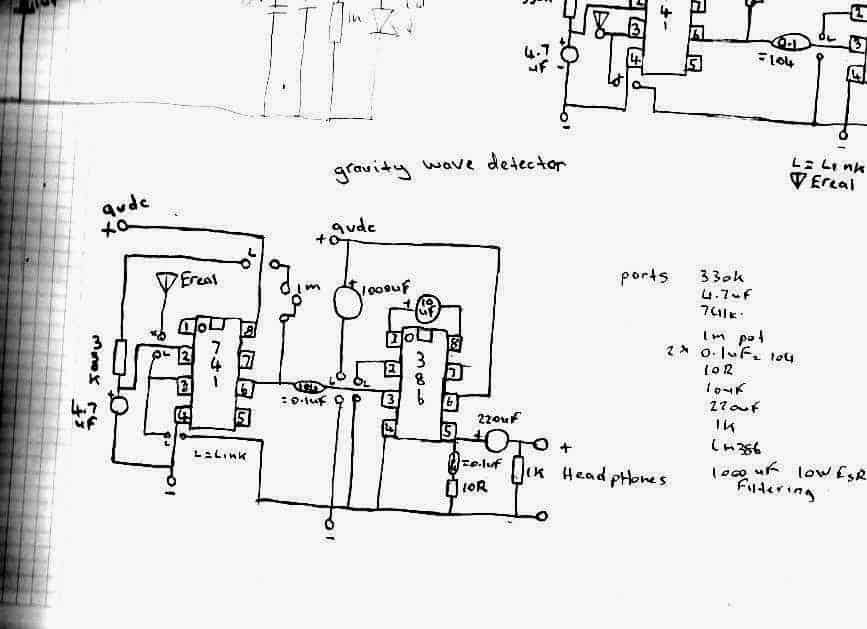 1n
4
1
3
6
4
5
4.7
uF
0.1
=104
L
3
4
L = Link
Ereal
gravity wave detector
9vdc
+
L
Ereal
1m
1
2
3
4
7
4
1
8
7
6
5
4.7
uF
L
L
L=Link
104
=0.1uF
9vdc
+
1000uF
+
10
uF
1
2
3
4
3
8
6
8
7
6
5
L
L
220uF
+
=0.1uF
10R
1K
Headphones
+
-
-
parts
330k
4.7uF
741k.
1m pot
2x 0.1uF=104
10R
10uF
220uF
1K
Lm386
1000uF low ESR
Filtering